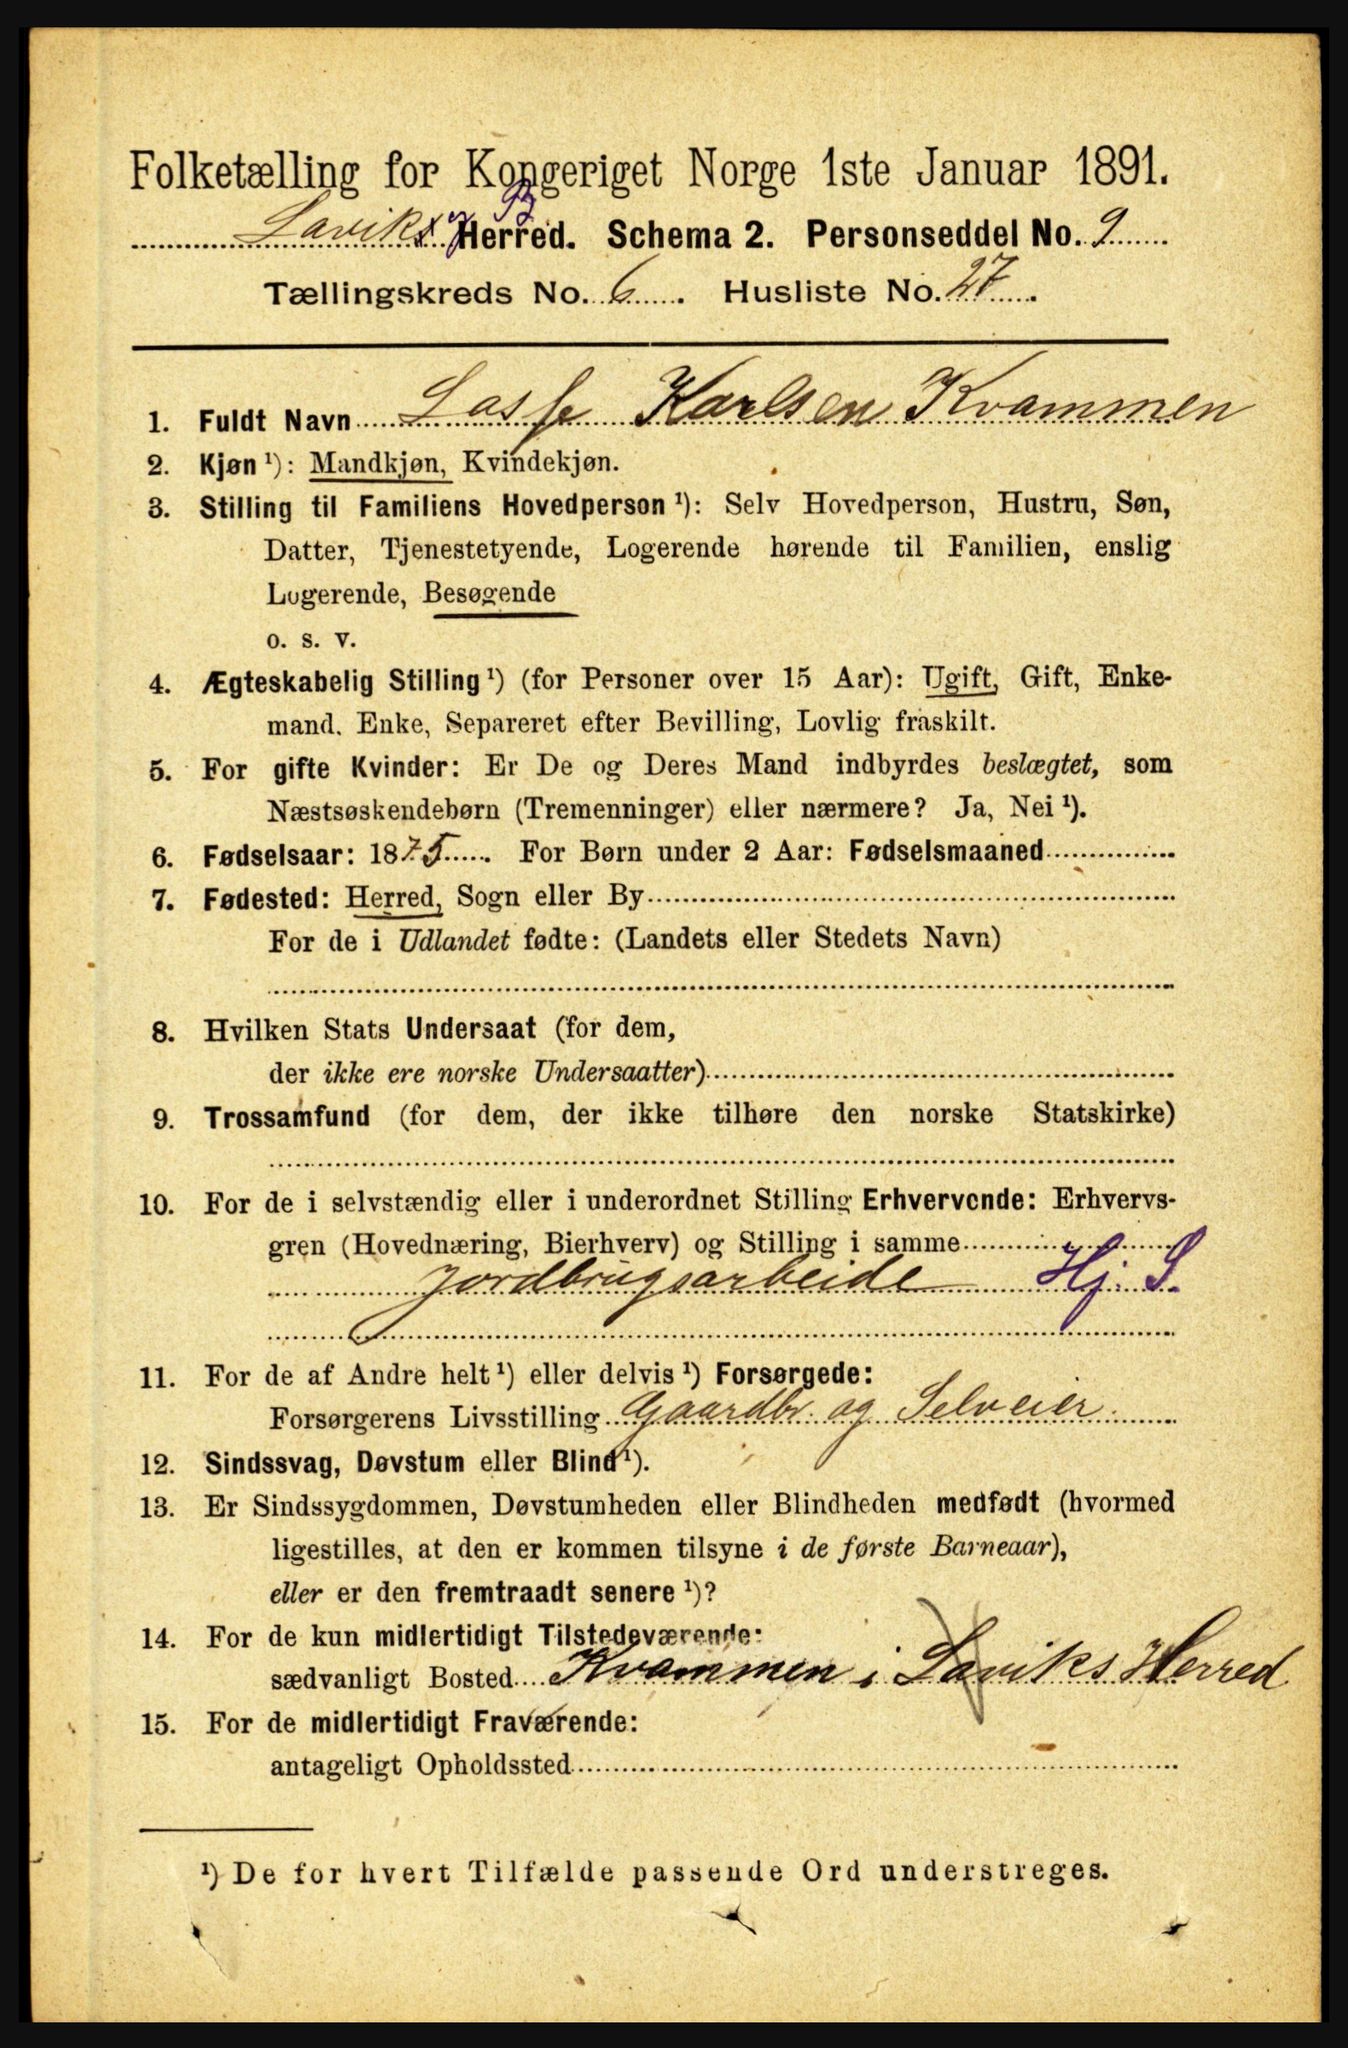 Folketælling for Kongeriget Norge 1ste Januar 1891.
Laviks Herred. Schema 2. Personseddel No. 9
Tællingskreds No. 6. Husliste No. 27.
1. Fuldt Navn Lasse Karlsen Kvammen
2. Kjøn ¹): Mandkjøn, Kvindekjøn.
3. Stilling til Familiens Hovedperson ¹): Selv Hovedperson, Hustru, Søn,
Datter, Tjenestetyende, Logerende hørende til Familien, enslig
Logerende, Besøgende
o. s. v.
4. Ægteskabelig Stilling ¹) (for Personer over 15 Aar): Ugift, Gift, Enke-
mand, Enke, Separeret efter Bevilling, Lovlig fraskilt.
5. For gifte Kvinder: Er De og Deres Mand indbyrdes beslægtet, som
Næstsøskendebørn (Tremenninger) eller nærmere? Ja, Nei ¹).
6. Fødselsaar: 1875. For Børn under 2 Aar: Fødselsmaaned
7. Fødested: Herred, Sogn eller By
For de i Udlandet fødte: (Landets eller Stedets Navn)
8. Hvilken Stats Undersaat (for dem,
der ikke ere norske Undersaatter)
9. Trossamfund (for dem, der ikke tilhøre den norske Statskirke)
10. For de i selvstændig eller i underordnet Stilling Erhvervende: Erhvervs-
gren (Hovednæring, Bierhverv) og Stilling i samme
Jordbrugsarbeide Hj. S.
11. For de af Andre helt ¹) eller delvis ¹) Forsørgede:
Forsørgerens Livsstilling Gaardbr. og Selveier
12. Sindssvag, Døvstum eller Blind ¹).
13. Er Sindssygdommen, Døvstumheden eller Blindheden medfødt (hvormed
ligestilles, at den er kommen tilsyne i de første Barneaar),
eller er den fremtraadt senere ¹)?
14. For de kun midlertidigt Tilstedeværende:
sædvanligt Bosted Kvammen i Laviks Herred
15. For de midlertidigt Fraværende:
antageligt Opholdssted
¹) De for hvert Tilfælde passende Ord understreges.